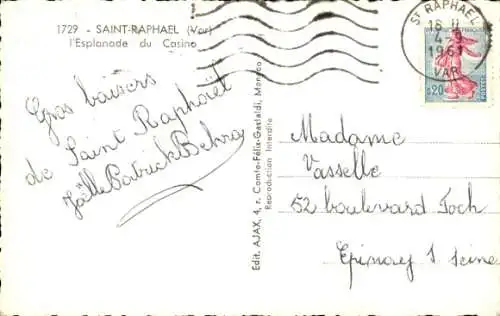 1729 - SAINT-RAPHAEL (Var)
l'Esplanade du Casino
ST RAPHAEL
18 H
4-9
1961
VAR
0,20
POSTES
Gros baisers
de Saint Raphaël
Joëlle Patrick Behra
Edit. AJAX, 4, r. Comte-Félix-Gastaldi, Monaco
Reproduction Interdite
Madame
Vasselle
52 boulevard Foch
Epinay S Seine